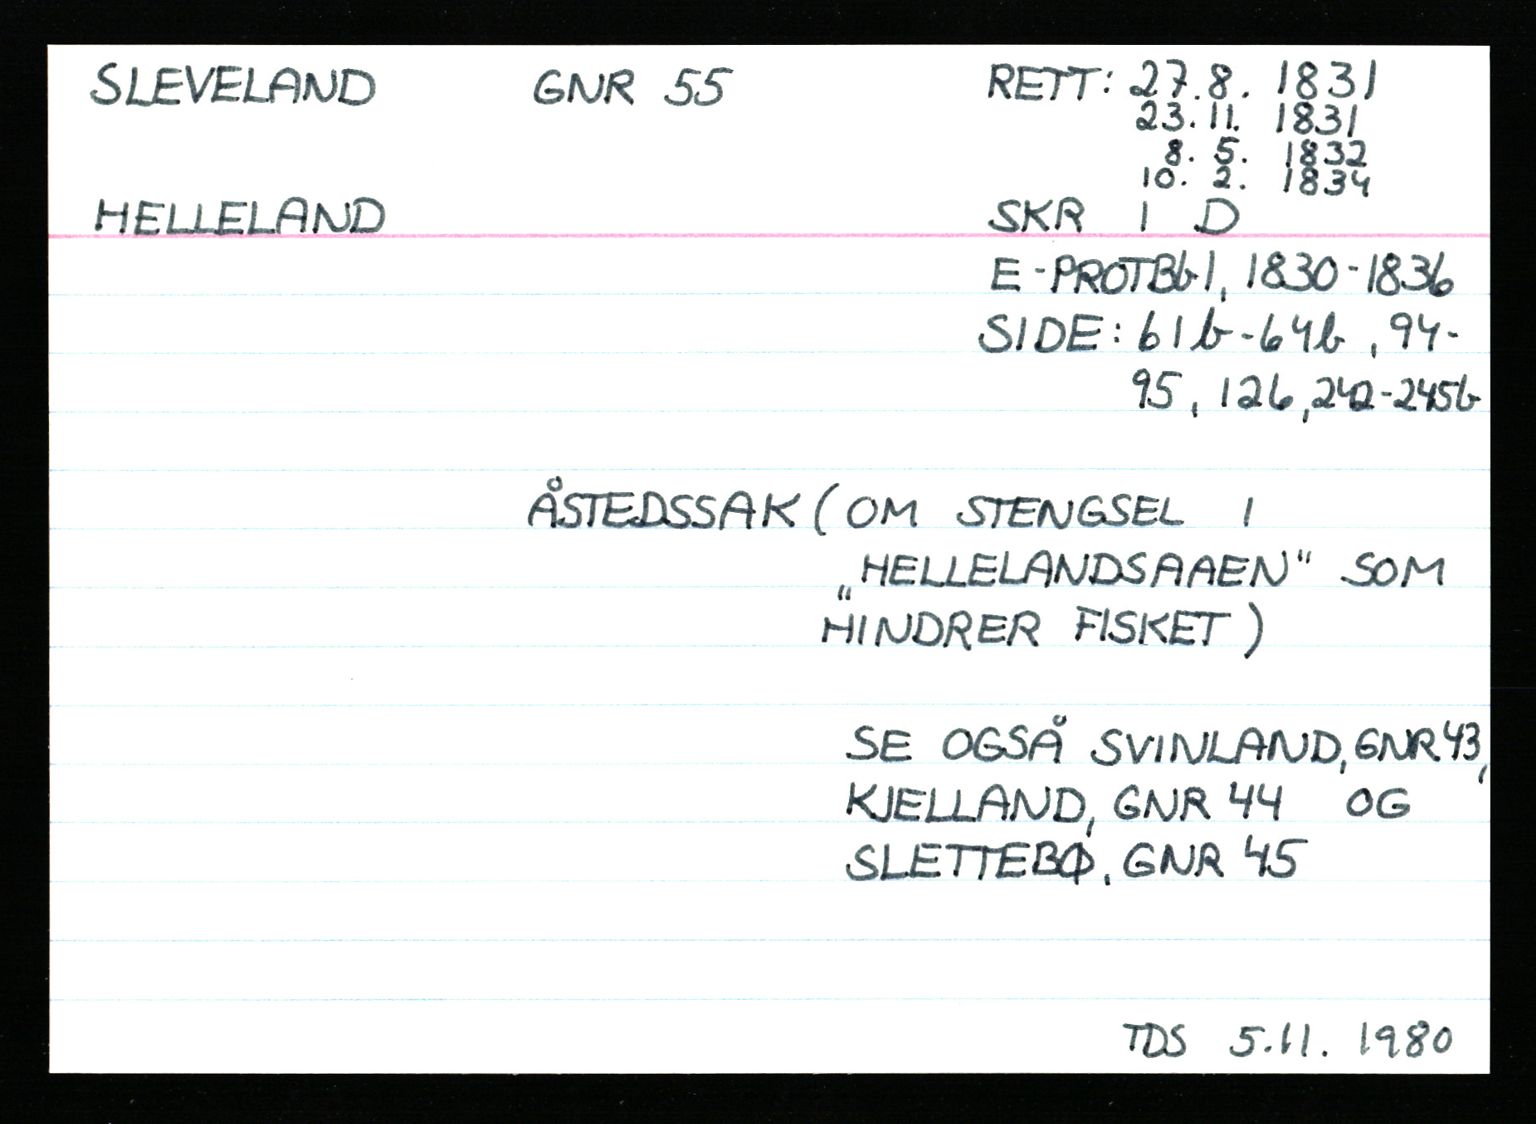 SLEVELAND GNR 55 RETT: 27.8. 1831
23.11. 1831
8. 5. 1832
10. 2. 1834
HELLELAND SKR 1 D
E-PROTBb1, 1830-1836
SIDE: 61b-64b, 94-
95, 126, 242-245b
ÅSTEDSSAK (OM STENGSEL I
„HELLELANDSAAEN“ SOM
HINDRER FISKET)
SE OGSÅ SVINLAND, GNR 43,
KJELLAND, GNR 44 OG
SLETTEBØ, GNR 45
TDS 5.11. 1980